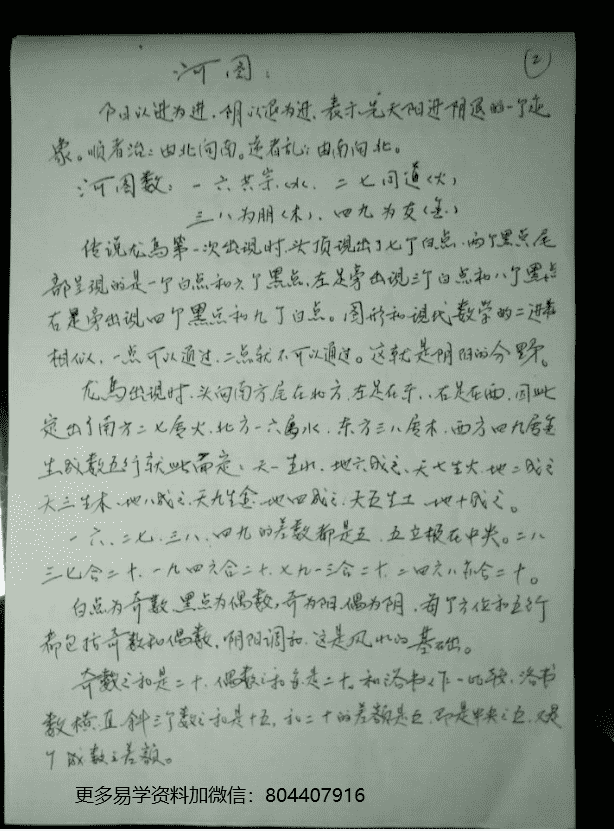 河图：
(2)
阳以进为进，阴以退为进，表示先天阳进阴退的一个迹
象。顺者治：由北向南。逆者乱：由南向北。
河图数：一六共宗（水），二七同道（火）
三八为朋（木），四九为友（金）
传说龙馬第一次出现时，头顶现出了七个白点，两个黑点，尾
部呈现的是一个白点和六个黑点，左足旁出现三个白点和八个黑点
右足旁出现四个黑点和九个白点。图形和现代数学的二进制
相似，一点可以通过，二点就不可以通过。这就是阴阳的分野。
龙馬出现时，头向南方尾在北方，左足在东，右足在西，因此
定出了南方二七居火，北方一六居水，东方三八居木，西方四九居金
生成数五行就此而定：天一生水，地六成之，天七生火，地二成之
天三生木，地八成之，天九生金，地四成之，天五生土，地十成之。
一六、二七、三八、四九的差数都是五，五立极在中央。二八
三七合二十，一九四六合二十，七九一三合二十，二四六八亦合二十。
白点为奇数，黑点为偶数，奇为阳，偶为阴，每个方位和五行
都包括奇数和偶数，阴阳调和，这是风水的基础。
奇数之和是二十，偶数之和亦是二十。和洛书作一比较，洛书
数横直斜三个数之和是十五，和二十的差额是五，即是中央之五，又是
个成数之差额。
更多易学资料加微信：804407916